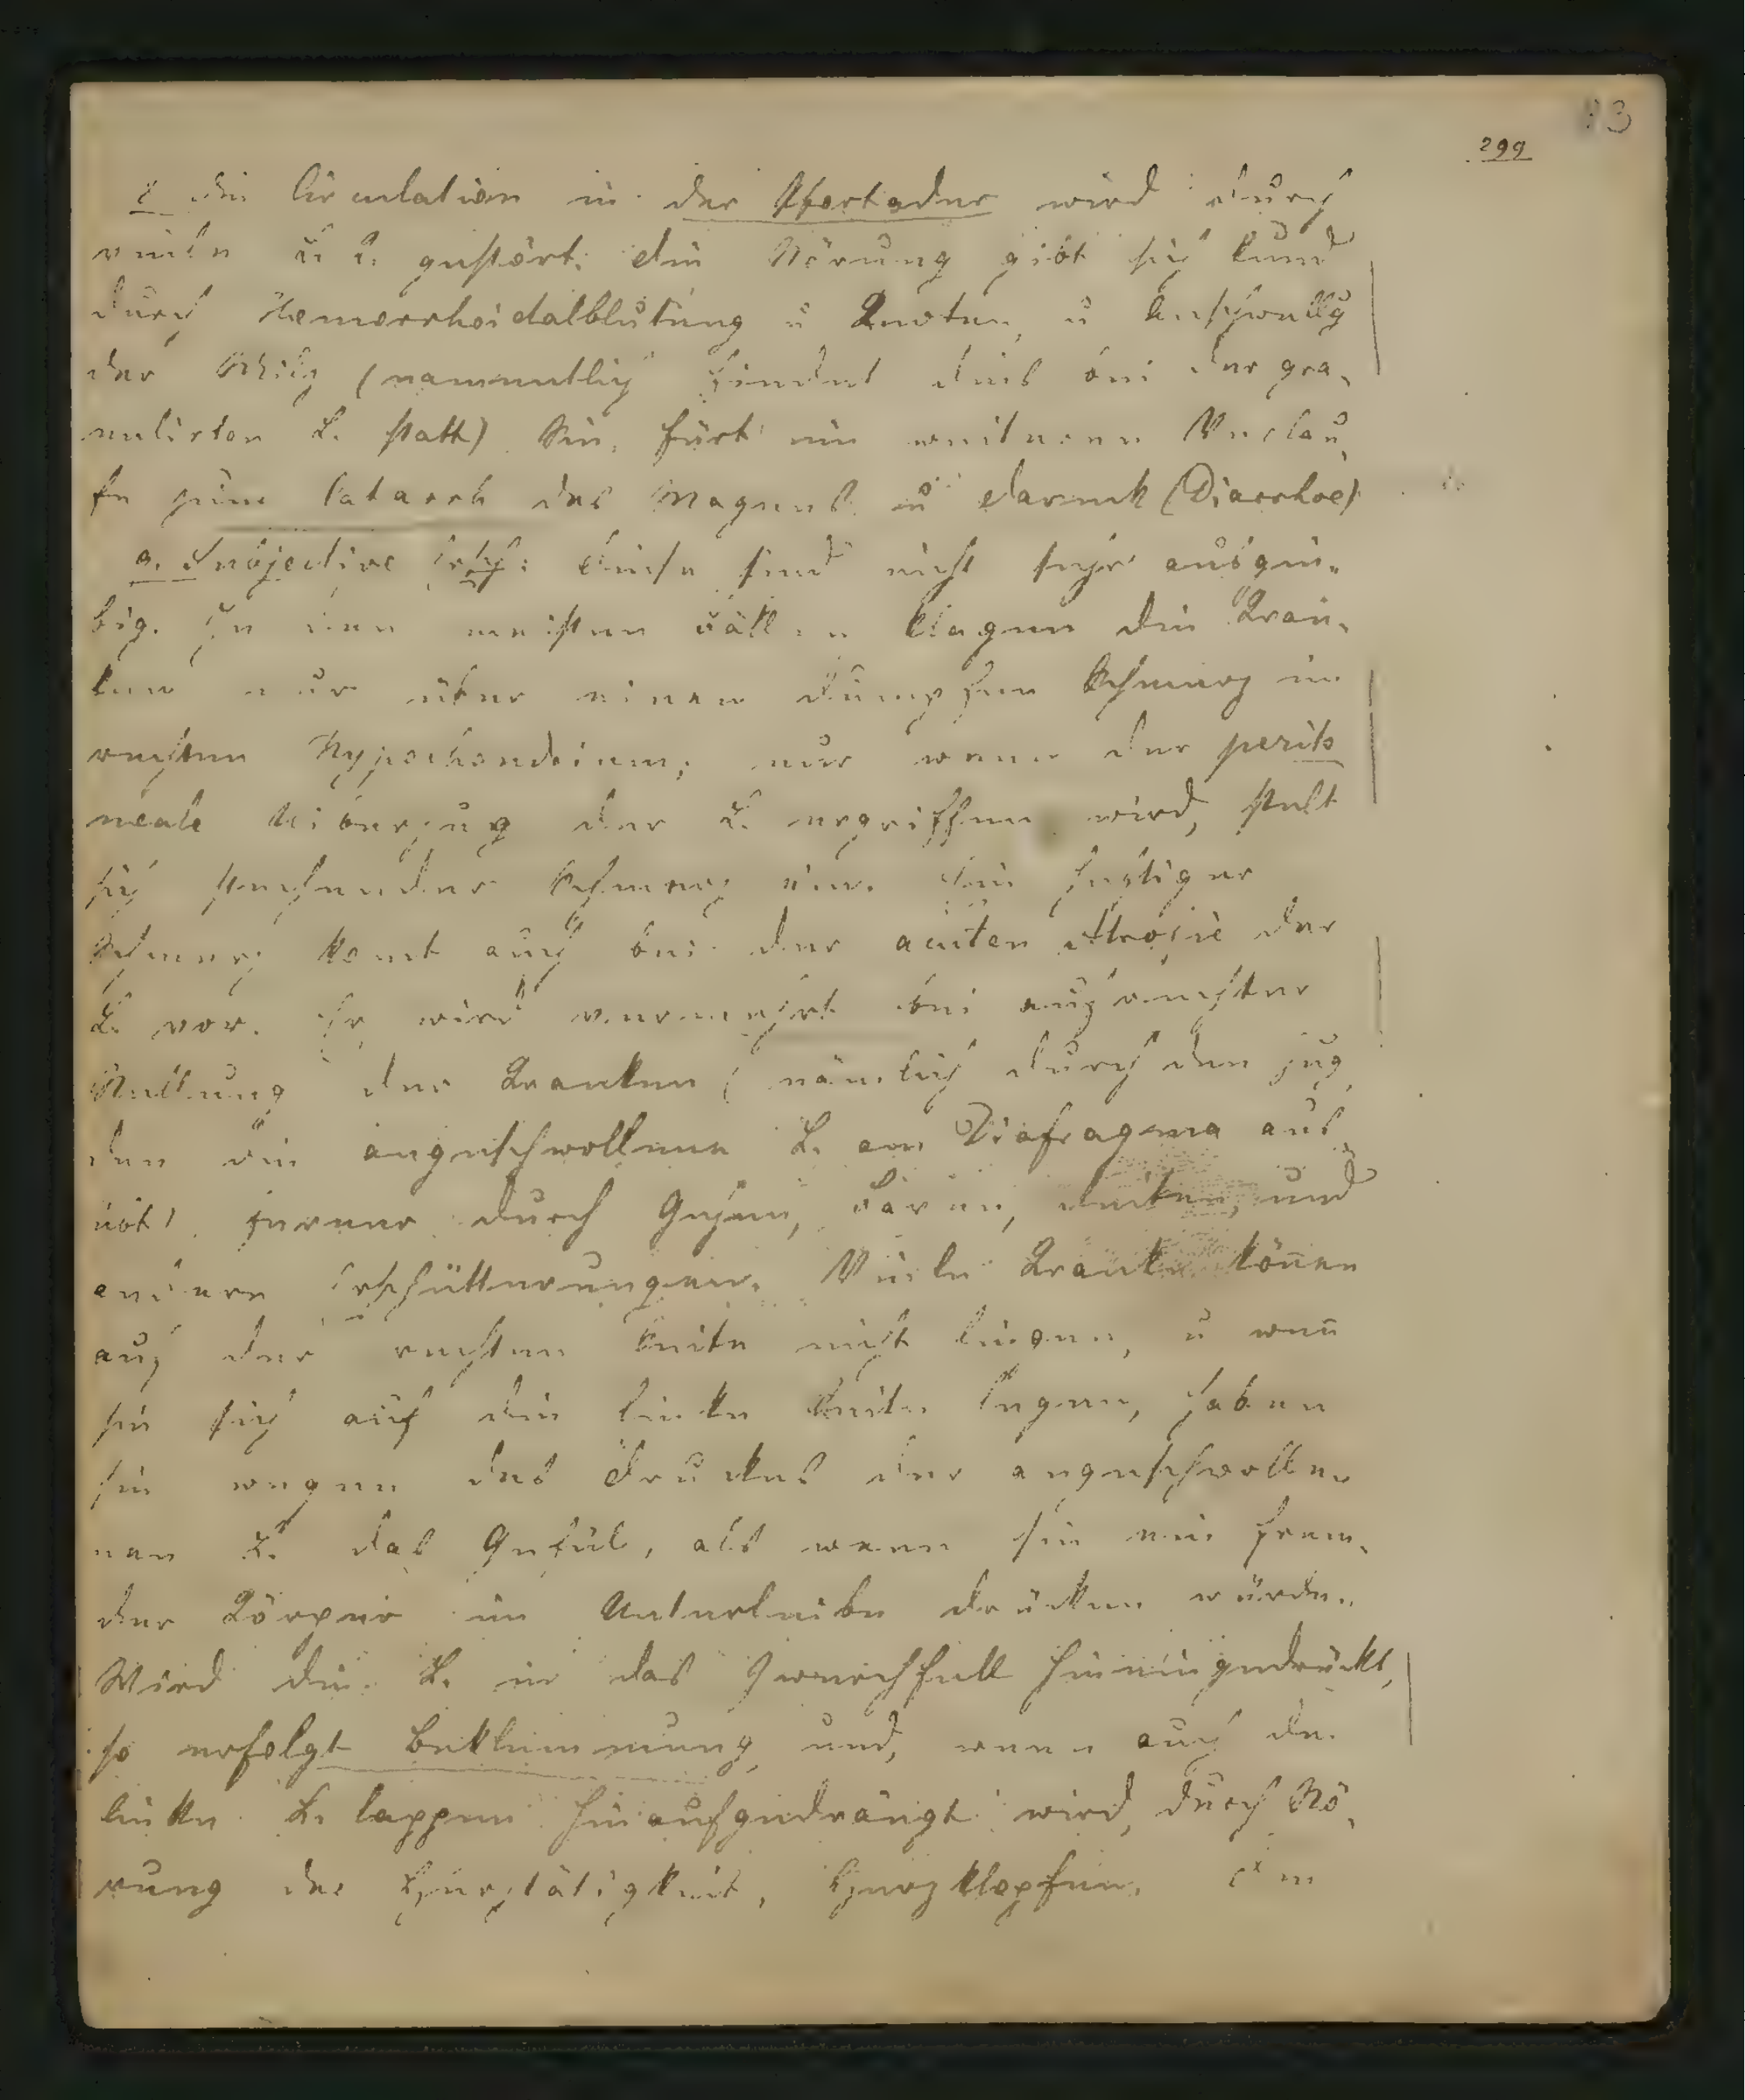 13
299
8. Die Circulation in der Pfortader wird durch
viele L. L. gestört. Die Störung gibt sich kund
durch Hemorrhoidalblutung u Knoten, u Anschwellg
der Milz (namentlich findet dies bei der gra-
nulirten L. statt). Sie fürt im weiteren Verlau-
fe zum Catarrh des Magens u Darmk (Diarrhoe)
9. Subjective Ersch: Diese sind nicht sehr ausgie-
big. In den meisten Fällen klagen die Kran-
ken nur über einen dumpfen Schmerz im
rechten Hypochondrium; nur wenn der perito
neale Uiberzug der L. ergriffen wird, stelt
sich stechender Schmerz ein. Ein heftiger
Schmerz komt auch bei der acuten Atrofie der
L. vor. Er wird vermehrt bei aufrechter
Stellung der Kranken (nämlich durch den Zug
den die angeschwollene L. am Diafragma aus-
übt) ferner durch Gehen, Faren, Reiten, und
andere Erschütterungen. Viele Kranke könen
auf der rechten Seite nicht liegen, u wen
sie sich auf die linke Seite legen, haben
sie wegen des Druckes der angeschwolle-
nen L. das Gefül, als wenn sie ein frem-
der Körper im Unterleibe drücken würde.
Wird die L. in das Zwerchfell hineingedrückt,
so erfolgt Beklemmung, und, wenn auch der
linke L. lappen hinaufgedrängt wird, durch Stö-
rung der Herztätigkeit, Herzklopfen.